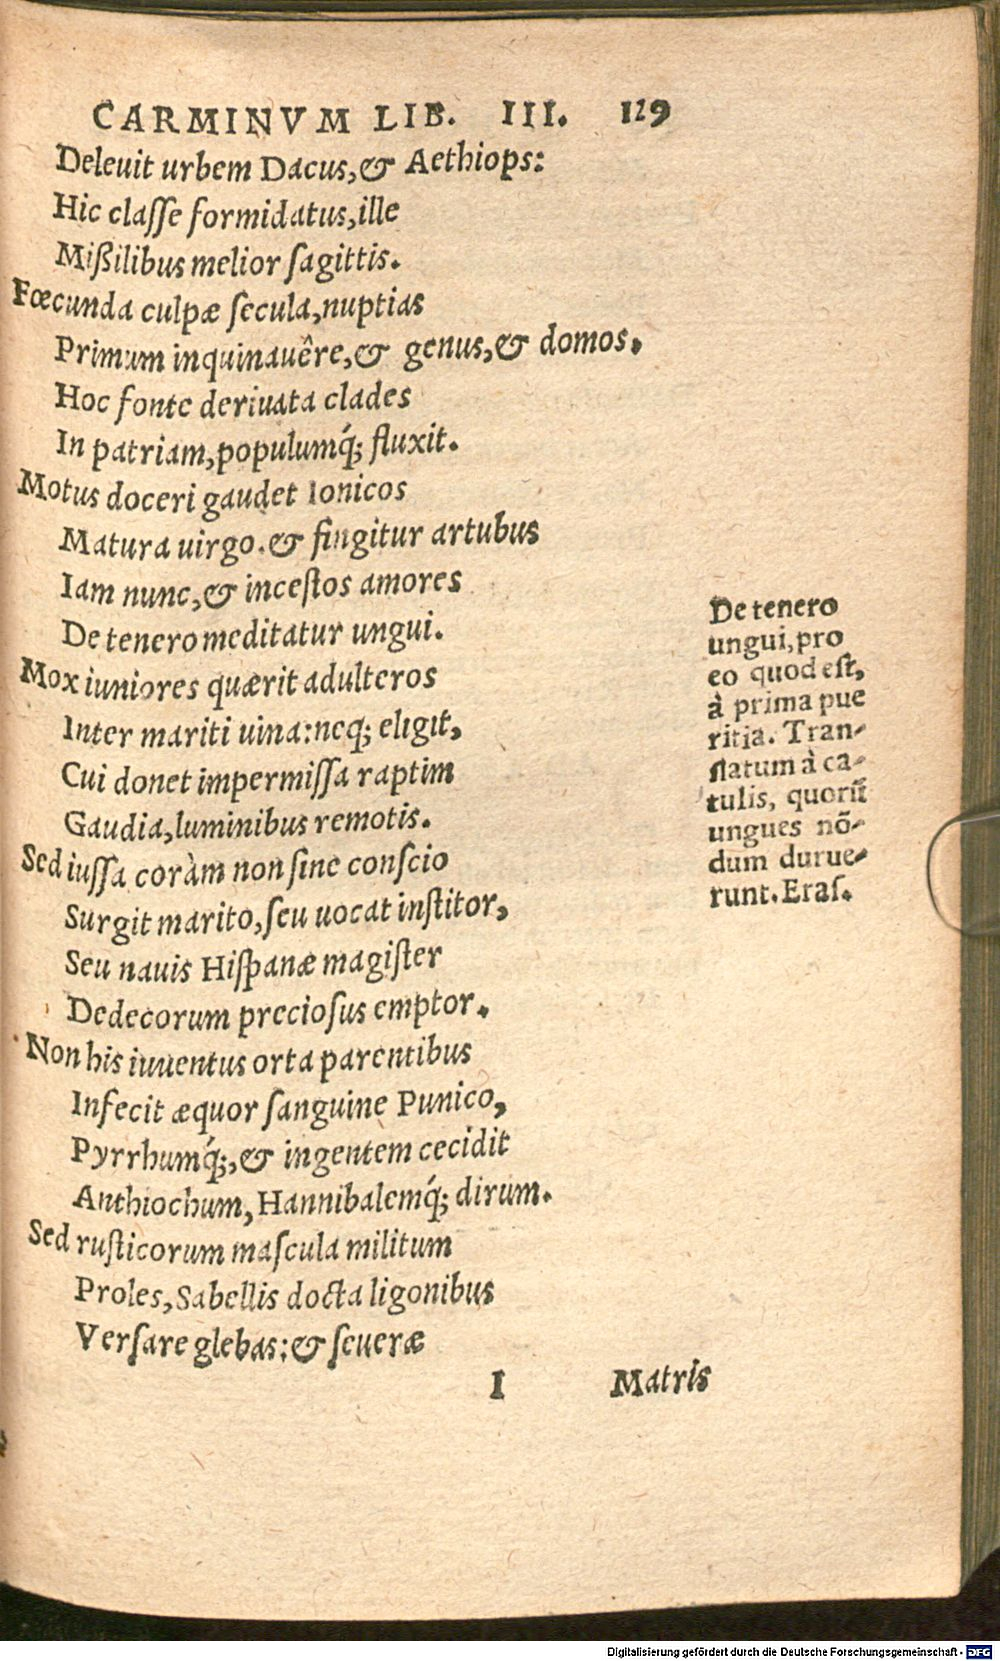 CARMINVM LIB. III. 129
Deleuit urbem Dacus,& Aethiops:
Hic claſſe formidatus,ille
Mißilibus melior ſagittis.
Fœcunda culpæ ſecula,nuptias
Primum inquinauêre,& genus,& domos.
Hoc fonte deriuata clades
In patriam,populumq́; fluxit.
Motus doceri gaudet Ionicos
Matura uirgo.& fingitur artubus
Iam nunc,& inceſtos amores
De tenero meditatur ungui.
Mox iuniores quærit adulteros
Inter mariti uina:neq; eligit,
Cui donet impermiſſa raptim
Gaudia,luminibus remotis.
Sed iuſſa coràm non ſine conſcio
Surgit marito,ſeu uocat inſtitor,
Seu nauis Hiſpanæ magiſter
Dedecorum precioſus emptor.
Non his iuuentus orta parentibus
Infecit æquor ſanguine Punico,
Pyrrhumq́;,& ingentem cecidit
Anthiochum, Hannibalemq́; dirum.
Sed ruſticorum maſcula militum
Proles,Sabellis docta ligonibus
Verſare glebas:& ſeueræ
I Matris
De tenero
ungui,pro
eo quod eſt,
à prima pue
ritia. Tran-
ſlatum à ca-
tulis, quorũ
ungues nõ-
dum durue-
runt.Eraſ.
Digitalisierung gefördert durch die Deutsche Forschungsgemeinschaft - DFG